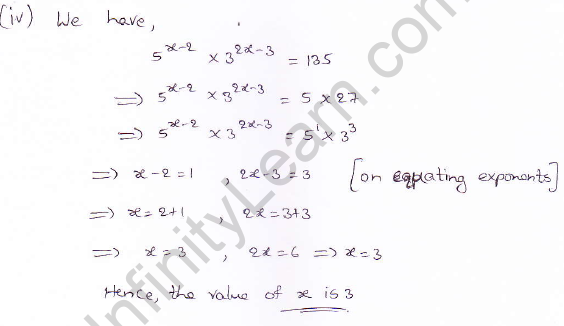 (iv) We have,
5^{x-2} × 3^{2x-3} = 135
⇒ 5^{x-2} × 3^{2x-3} = 5 × 27
⇒ 5^{x-2} × 3^{2x-3} = 5^1 × 3^3
⇒ x-2 = 1 , 2x-3 = 3 [on equating exponents]
⇒ x = 2+1 , 2x = 3+3
⇒ x = 3 , 2x = 6 ⇒ x = 3
Hence, the value of x is 3
InfinityLearn.com